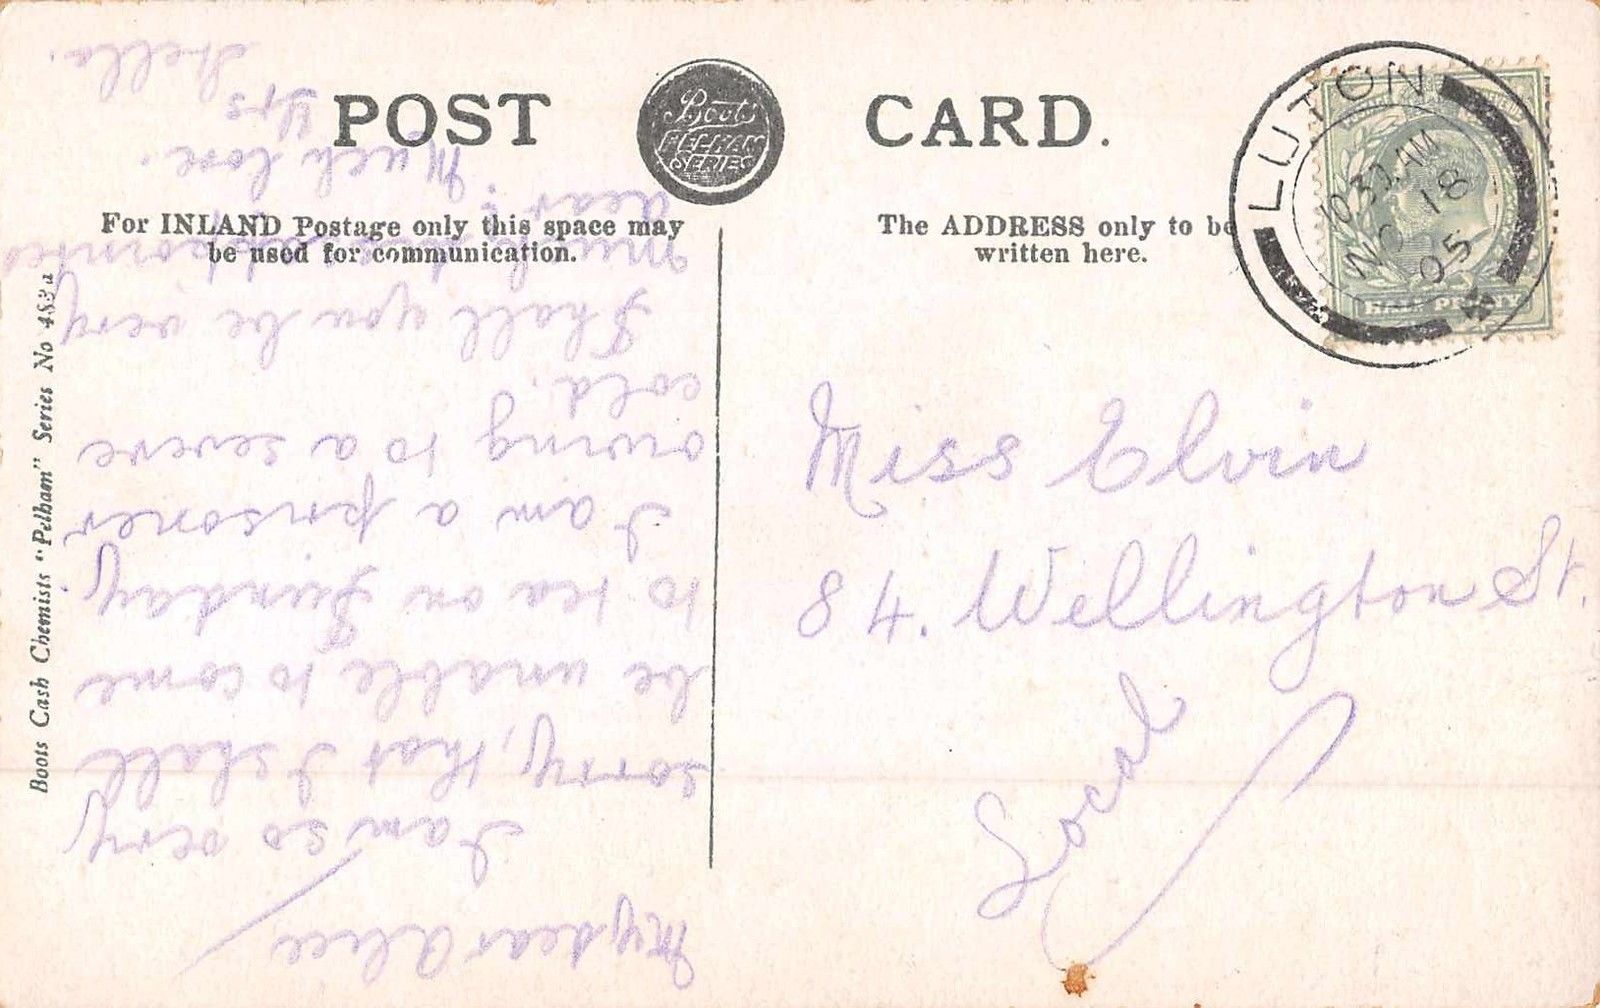 POST CARD.
Boots
PELHAM
SERIES
For INLAND Postage only this space may
be used for communication.
The ADDRESS only to be
written here.
Boots Cash Chemists "Pelham" Series No 483a
LUTON
10 30 AM
NO 18
05
HALFPENNY
Miss Elvin
84. Wellington St.
Local
My dear Alice
I am so very
sorry, that I shall
be unable to come
to tea on Sunday,
I am a prisoner
owing to a severe
cold.
Shall you be very
much disappointed
dear?
Much love.
Yrs